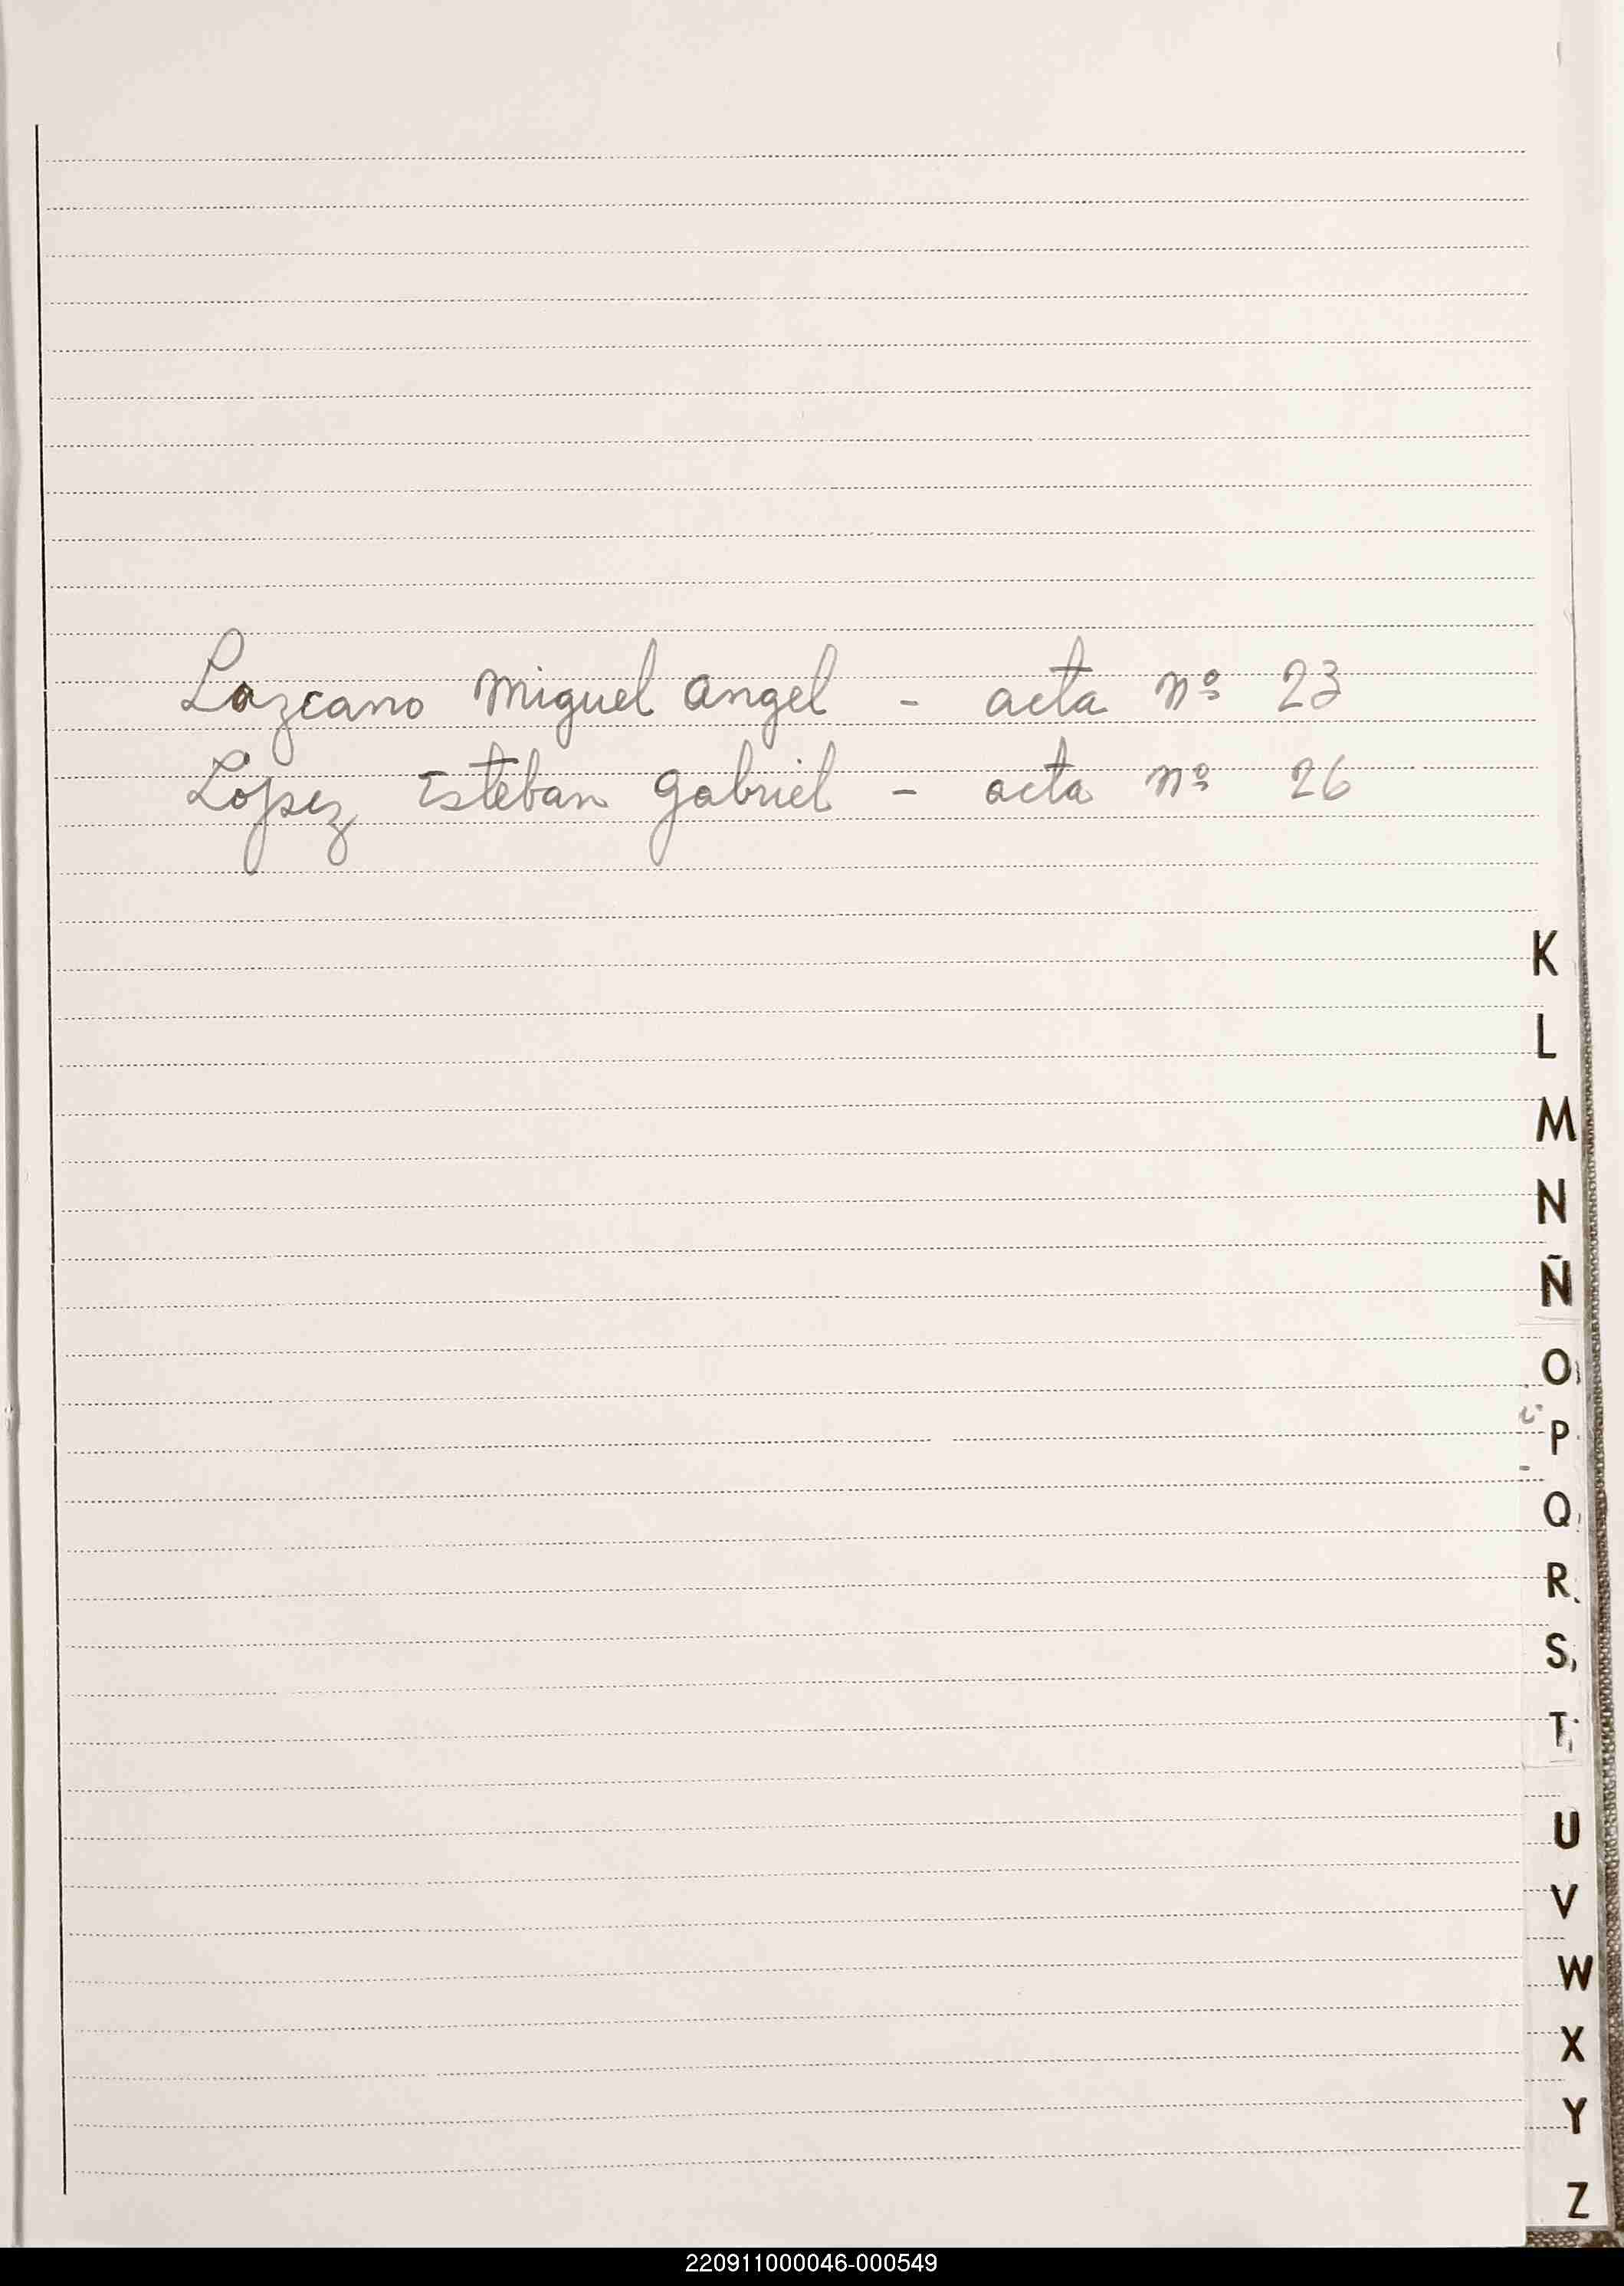 Lazcano Miguel Angel - acta nº 23
López Esteban Gabriel - acta nº 26
K
L
M
N
Ñ
O
P
Q
R
S
T
U
V
W
X
Y
Z
220911000046-000549